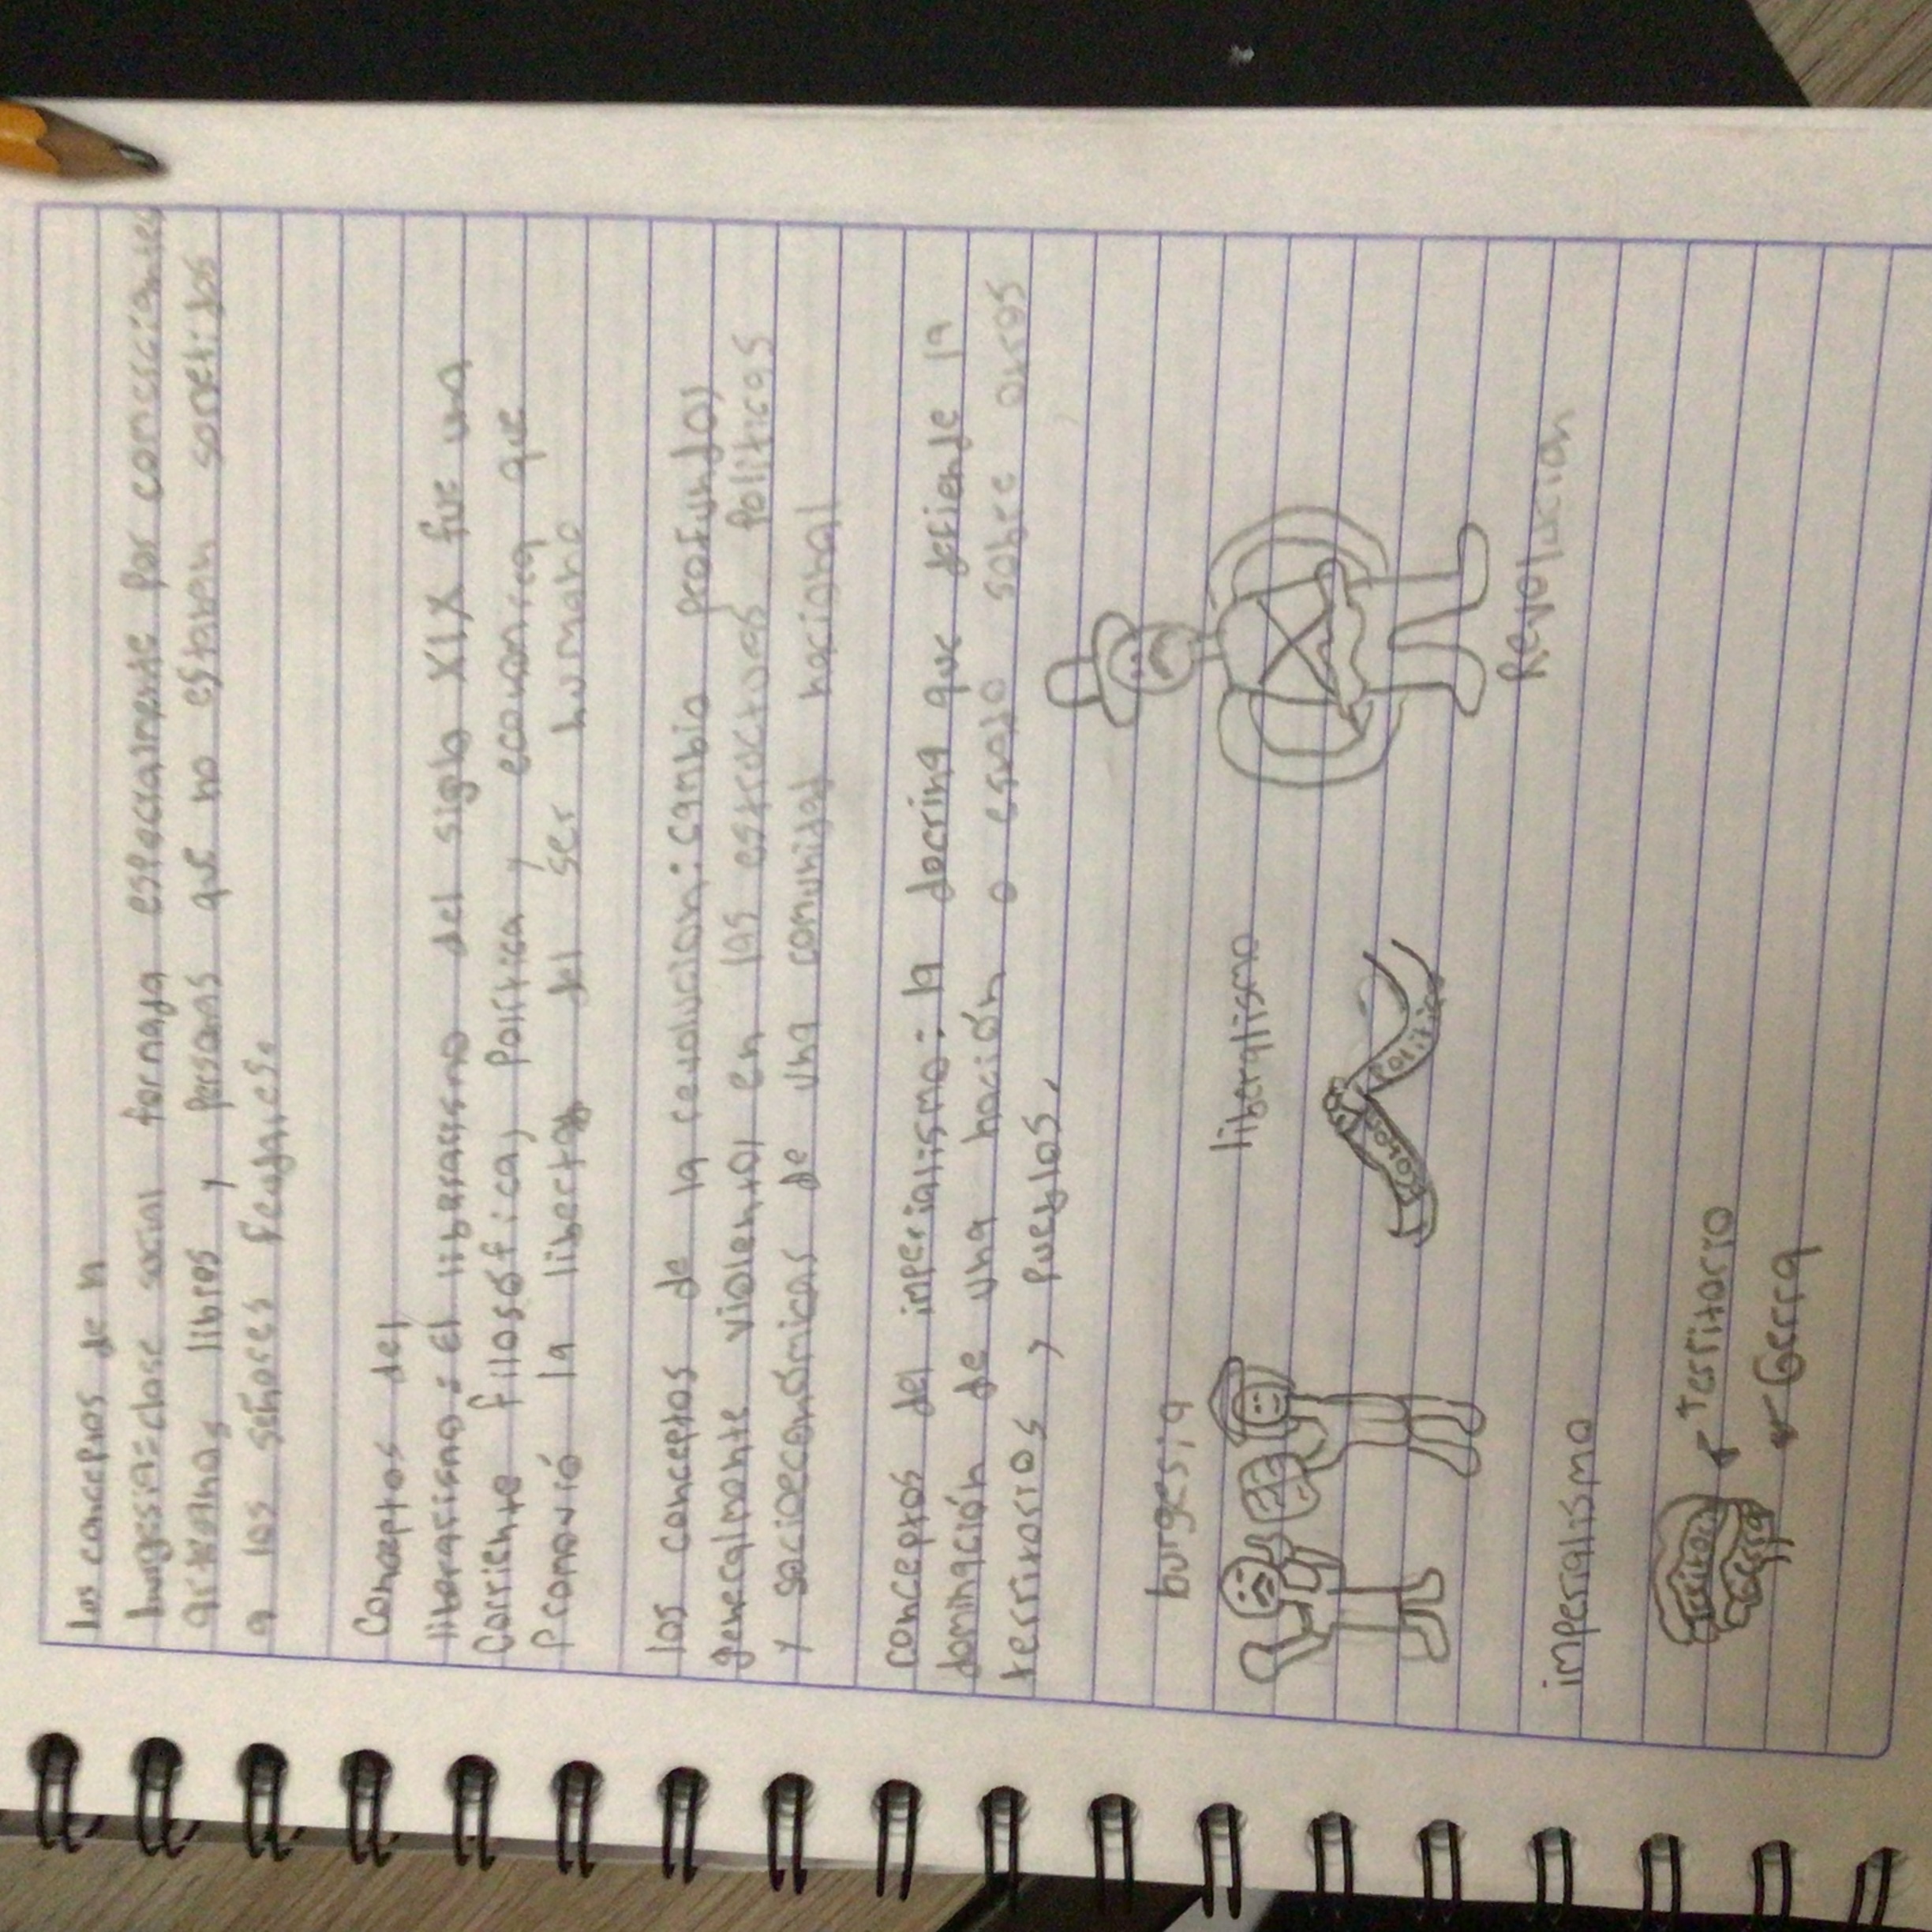 los conceptos de la
burgesia: clase social formada especialmente por comerciantes
artesanos libres y personas que no estaban sometidos
a los señores feudales.
Conceptos del
liberarismo: El liberarismo del siglo XIX fue una
Corriente filosófica, Política y económica que
Promovió la libertad del ser humano
los conceptos de la revolucion: cambio profundo,
generalmonte violento, en las estructuras politicas
y socioeconómicas de una comunidad nacional
conceptos del imperialismo: la docrina que defiende la
dominación de una nación o estado sobre otros
territorios y pueblos.
burgesia
liberalismo
Politica
Revolucion
imperialismo
Territorio
Gerra